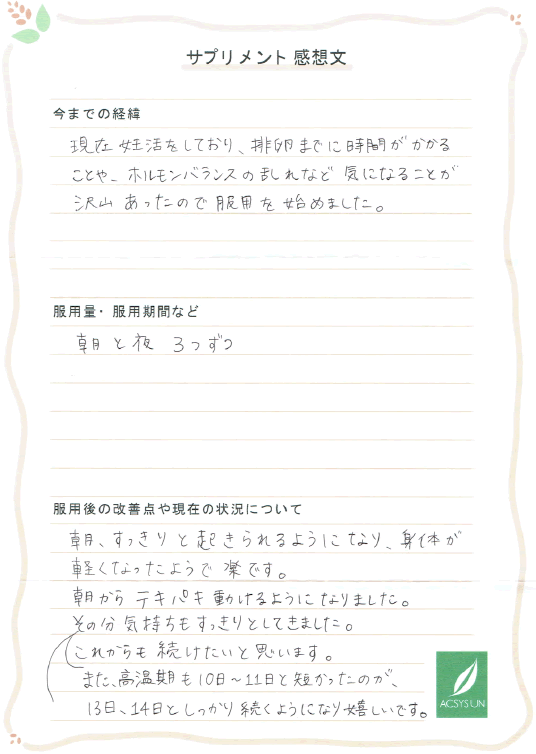 サプリメント 感想文
今までの経緯
現在 妊活をしており、排卵までに時間がかかる
ことや、ホルモンバランスの乱れなど 気になることが
沢山 あったので 服用を始めました。
服用量・服用期間など
朝と夜 3つずつ
服用後の改善点や現在の状況について
朝、すっきりと起きられるようになり、身体が
軽くなったようで 楽です。
朝から テキパキ動けるようになりました。
その分 気持ちもすっきりとしてきました。
これからも 続けたいと思います。
また、高温期も10日〜11日と短かったのが、
13日、14日としっかり続くようになり嬉しいです。
ACSYSUN